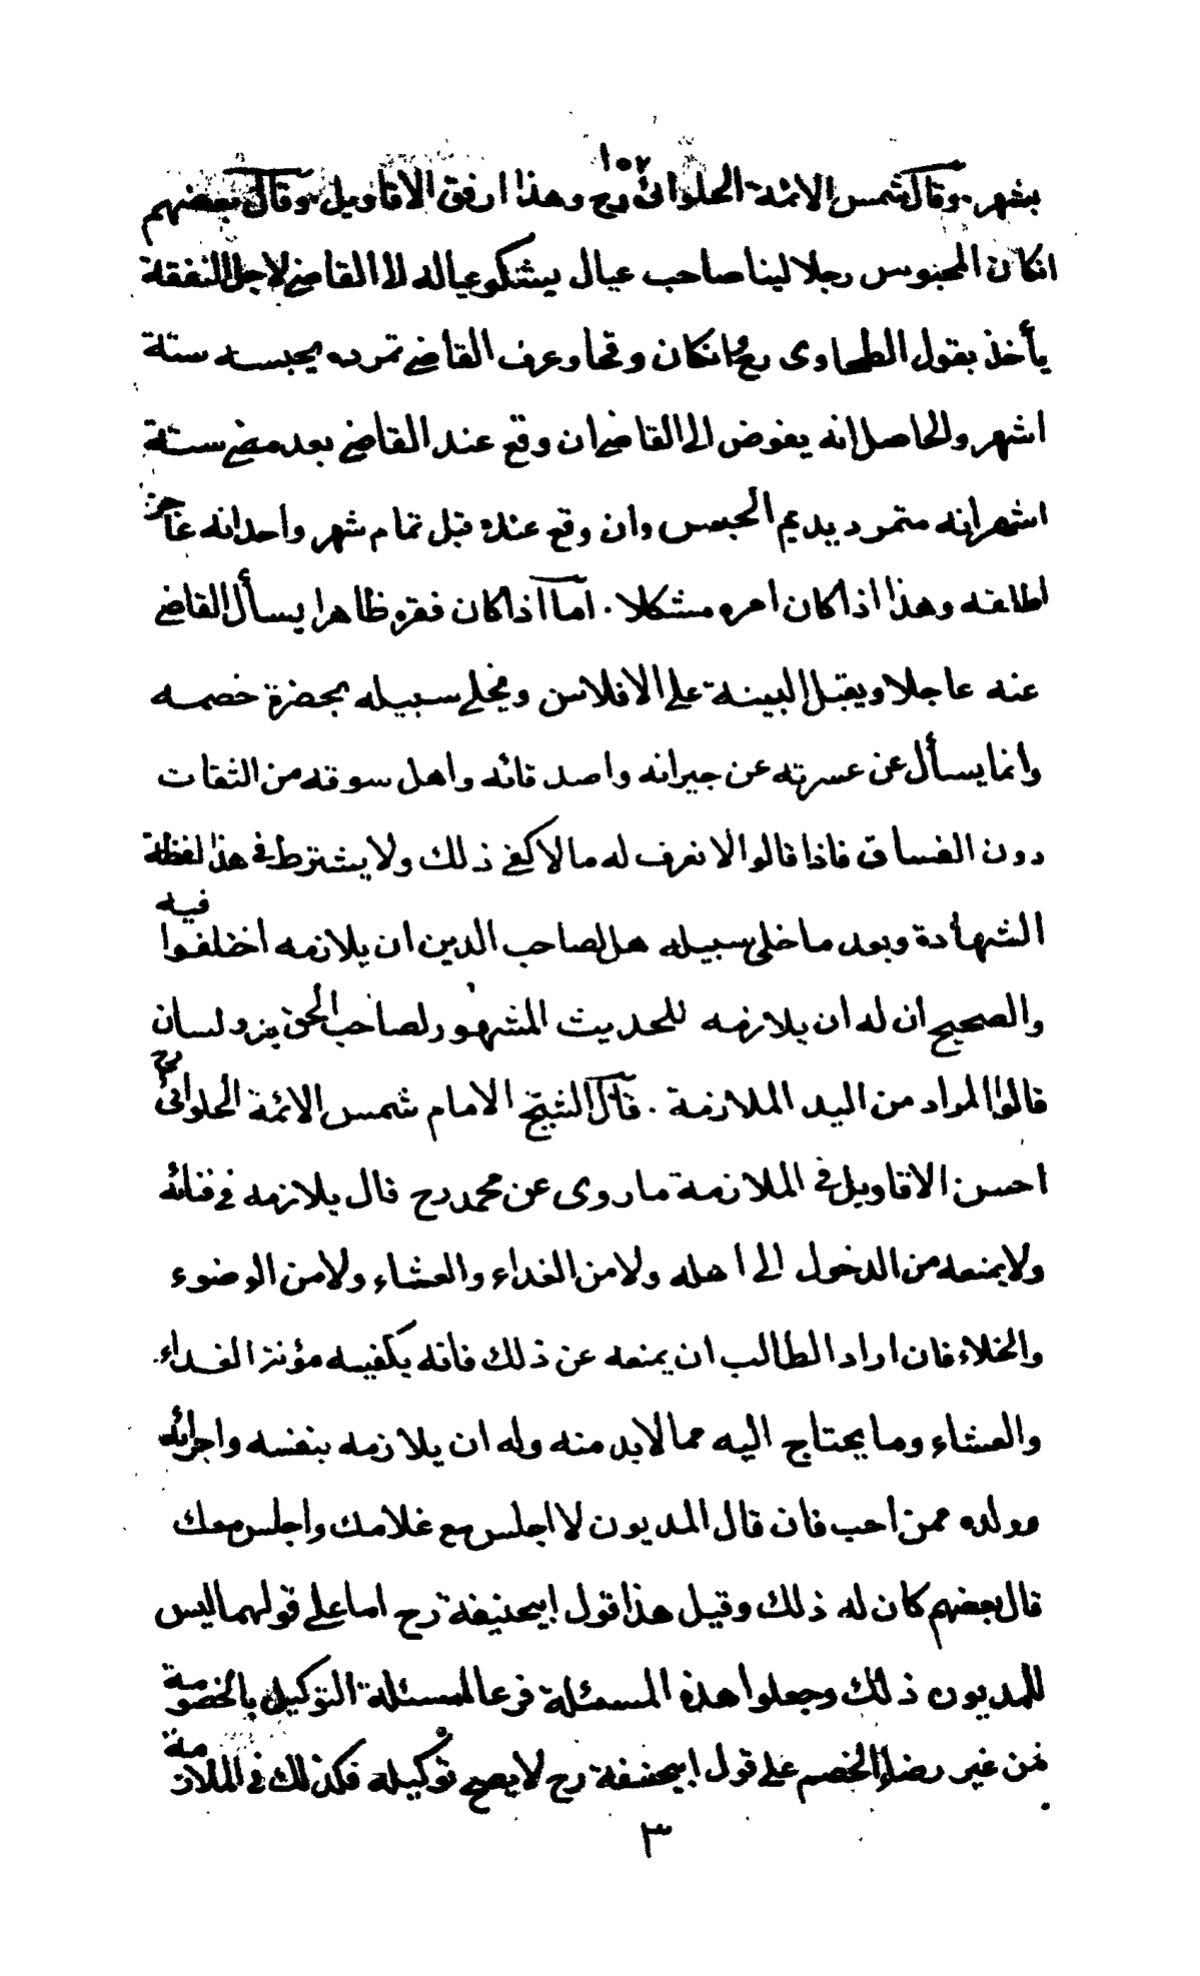 ١٥٢
بشهر وقال شمس الائمة الحلوانى رح وهذا ارفق الاقاويل وقال بعضهم
انكان المحبوس رجلا لينا صاحب عيال يشكو عياله الى القاضى لاجل النفقة
يأخذ بقول الطحاوى رح وانكان وقحا وعرف القاضى تمرده يحبسه ستة
اشهر والحاصل انه يفوض الى القاضى ان وقع عند القاضى بعد مضى ستة
اشهر انه متمرد يديم الحبس وان وقع عنده قبل تمام شهر واحد انه عاجز
اطلقه وهذا اذا كان امره مشكلا . اما اذا كان فقره ظاهرا يسأل القاضى
عنه عاجلا ويقبل البينة على الافلاس ويخلى سبيله بحضرة خصمه
وانما يسأل عن عسرته عن جيرانه واصدقائه واهل سوقه من الثقات
دون الفساق فاذا قالوا لا نعرف له مالا كفى ذلك ولا يشترط فى هذا لفظة
الشهادة وبعد ما خلى سبيله هل لصاحب الدين ان يلازمه اختلفوا فيه
والصحيح ان له ان يلازمه للحديث المشهور لصاحب الحق يد ولسان
قالوا المراد من اليد الملازمة . قال الشيخ الامام شمس الائمة الحلوانى رح
احسن الاقاويل فى الملازمة ما روى عن محمد رح قال يلازمه فى فنائه
ولا يمنعه من الدخول الى اهله ولا من الغداء والعشاء ولا من الوضوء
والخلاء فان اراد الطالب ان يمنعه عن ذلك فانه يكفيه مؤنة الغداء
والعشاء وما يحتاج اليه مما لابد منه وله ان يلازمه بنفسه واجرائه
وولده ممن احب فان قال المديون لا اجلس مع غلامك واجلس معك
قال بعضهم كان له ذلك وقيل هذا قول ابيحنيفة رح اما على قولهما ليس
للمديون ذلك وجعلوا هذه المسئلة فرعا لمسئلة التوكيل بالخصومة
من غير رضاء الخصم على قول ابيحنيفة رح لا يصح توكيله فكذلك فى الملازمة
٣